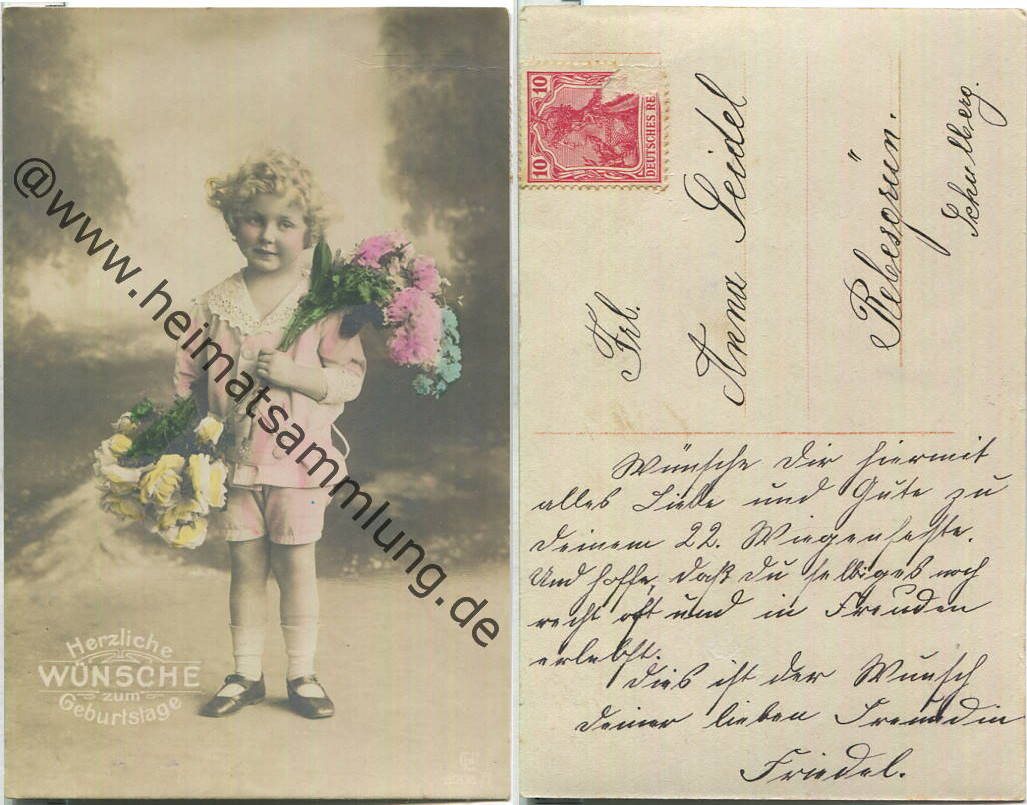 @www.heimatsammlung.de
Herzliche
WÜNSCHE
zum
Geburtstage
10
10
DEUTSCHES RE
Frl.
Anna Seidel
Rebesgrün.
Schulberg.
Wünsche Dir hiermit
alles Liebe und Gute zu
deinem 22. Wiegenfeste.
Und hoffe, daß du selbiges noch
recht oft und in Freuden
erlebst.
Dies ist der Wunsch
deiner lieben Freundin
Friedel.